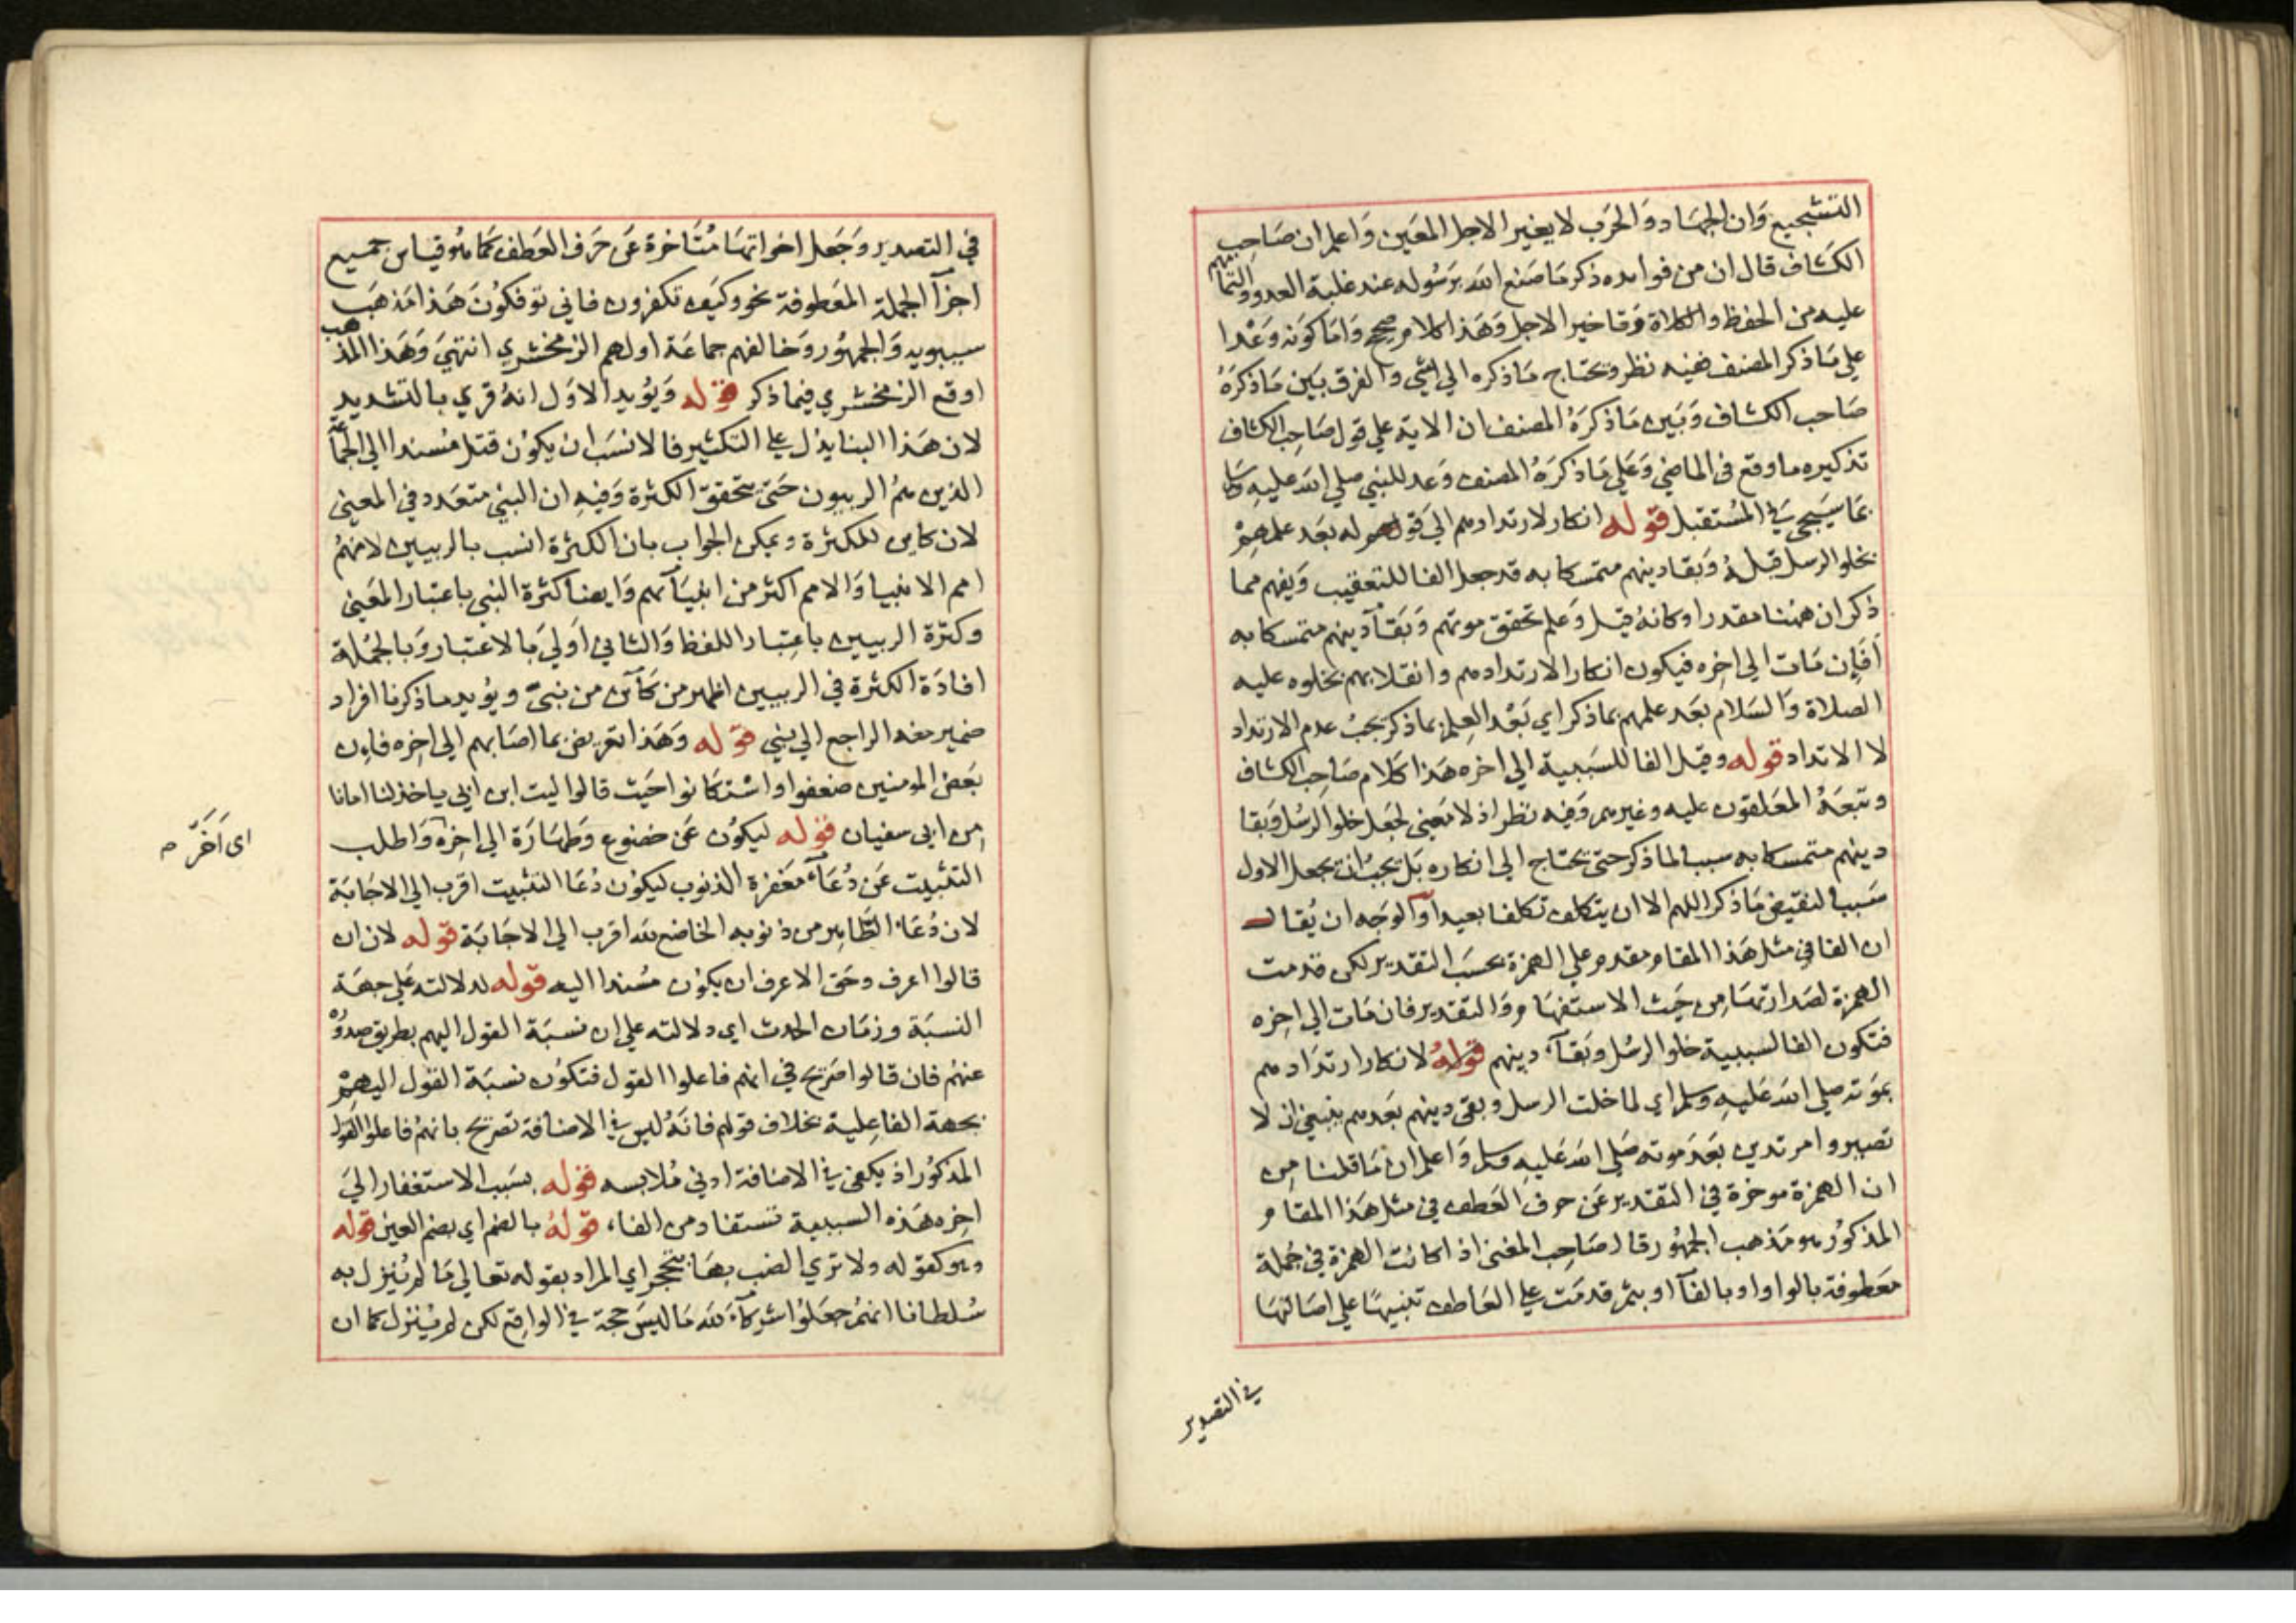 التشجيع وَان الجهَاد وَالحَرب لا يغير الاجل المعَين وَاعلم ان صَاحِب
الكشاف قال ان من فوايده ذكر مَا صَنع الله برَسُوله عند غلبة العدو والتفافهم
عليه من الحفظ والكلاة وتاخير الاجل وَهَذا كلام صحيح وَامَا كونه وَعْدا
علي مَا ذكر المصنف ففيه نظر ويحتاج مَا ذكره الي شي والفرق بَين مَا ذكرَهُ
صَاحب الكشاف وَبَين مَا ذكرَهُ المصنف ان الاية علي قول صَاحِب الكشاف
تذكيره ما وقع في الماضي وَعَلي مَا ذكرَهُ المصنف وَعد للنبي صلي الله عليه وسلم
بمَا سَيجي في المُستقبل قوله انكار لارتدادهم الي قوله بعَد علمهمْ
بخلو الرسل قبلهُ وَبقا دينهم متمسكا به قد جعل الفا للتعقيب وَيفهم مما
ذكر ان ههُنا مقدرا وكانهُ قيل وَعلم تحقق موتهم وَبَقآ دينهم متمسكا به
اَفَإِن مَات الي اخِره فيكون انكار الارتدادهم وانقلابهم بخلوه عليه
الصلاة وَالسَلام بعَد علمهم بما ذكر اي بَعْد العِلم بما ذكر يَجبُ عدم الارتداد
لا الارتداد قوله وقيل الفا للسَببية الي اخره هَذا كلام صَاحِب الكشاف
وتبعَهُ المعَلقون عليه وغيرهم وَفيه نظر اذ لا مَعني لجَعل خلو الرسُل وَبقا
دينهم متمسكا به سببا لما ذكر حتى يحتاج الي انكاره بَل يجبُ ان يجعل الاول
سَببا لنقيض مَا ذكر اللهم الا ان يتكلف تكلفا بعيدا وَالوجه ان يُقال
ان الفا في مثل هَذا المقام مقدم علي الهمزة بحسَب التقدير لكن قدمت
الهمزة لصَدارتهَا مِن حَيث الاستفهَام وَالتقدير فان مَات الي اخِره
فتكون الفا لسببية خلو الرسُل وبَقآء دينهم قولهُ لانكار ارتدَادهم
بموَته صلي الله عَليه وسلم اي لما خلت الرسل وبقي دينهم بَعدهم ينبغي ان لا
تصيروا مرتدين بَعَد موته صَلي الله عَليه وسلم وَاعلم ان مَا قلنا مِن
ان الهمزة موخرة في التقدير عَن حرف العَطف في مثل هَذا المقام
المذكوُر هو مَذهب الجمهُور قال صَاحِب المغني اذا كانت الهمزة في جُملة
معَطوفة بالواو او بالفآ او بثم قدمَت علي العَاطف تنبيهًا علي اصَالتهَا
في التصدير
في التصدير وَجَعل اخواتهَا مُتَاخرة عَن حَرف العَطف كمَا هُو قياس جميع
اجزآ الجملة المعَطوفة نحو وكيَف تكفرون فاني توفكوُن هَذا مَذهبَ
سيبويه وَالجمهُور وَخالفهم جماعَة اولهم الزمخشري انتهيَ وَهَذا المذهب
اوقع الزمخشري فيما ذكر قوله وَيُويد الاوَل انهُ قري بالتشديد
لان هَذا البنا يدُل علي التكثير فالانسَب ان يكوُن قتل مُسندا الي الجماعة
الذين همُ الربيون حَتى يتحققَ الكثرة وَفيهِ ان النبي متعَدد في المعني
لان كاين للكثرة ويمكن الجواب بان الكثرة انسب بالربيين لانهمُ
امم الانبيا وَالامم اكثر من انبيَآئهم وَايضا كثرة النبي باعتبار المعَني
وكثرة الربيين باعِتبار اللفظ وَالثاني اَولي بَالاعتبار وَبالجمُلة
افادَة الكثرة في الربيين اظهر من كَآيّن من نبيّ ويؤيد ما ذكرنا افراد
ضمير معه الراجع الي نبي قوله وَهَذا تعريض بما اصَابهم الي اخِره فاِن
بَعض المومنين ضعفوا واسْتكَانوا حَيث قالوا ليت ابن ابي ياخذ لنا امانا
مِن ابي سفيان قوله ليكوُن عَن خضوع وَطهَارَة الي اخِرهِ وَاطلب
اي اَخَّرَ م
التثبيت عَن دُعَآء مَغفرة الذنوب ليكوُن دُعَا التثبيت اقرب الي الاجَابَة
لان دُعَاء الطَاهِر من ذنوبه الخاضع لله اقرب الي الاجَابَة قوله لان ان
قالوا اعرف وحَق الاعرف ان يكوُن مسُندا اليه قوله لدلالته عَلي جهَة
النسبَة وزمَان الحدث اي دلالته علي ان نسبَة القول اليهم بطريق صدوره
عنهُم فان قالوا صَريح في انهم فاعلوا القول فتكوُن نسبَة القول اليهمْ
بجهة الفاعِلية بخلاف قولهم فانهُ ليس في الاضافة تصريح بانهمُ فاعلوا القول
المذكوُر اذ يكفي في الاضَافة ادني مُلابسه قوله بسَبب الاستغفار اليَ
اخِره هَذه السببية تستفاد من الفاء، قولهُ بالضم اي بضم العين قوله
وهو كقوله ولا تري الضب بهَا ينجحر اي المراد بقوله تعَالي مَا لم يُنزل به
سُلطانا انهُم جعَلوُا شركآءَ لله مَا ليسَ حجة في الواقع لكن لم يُنزل كما ان